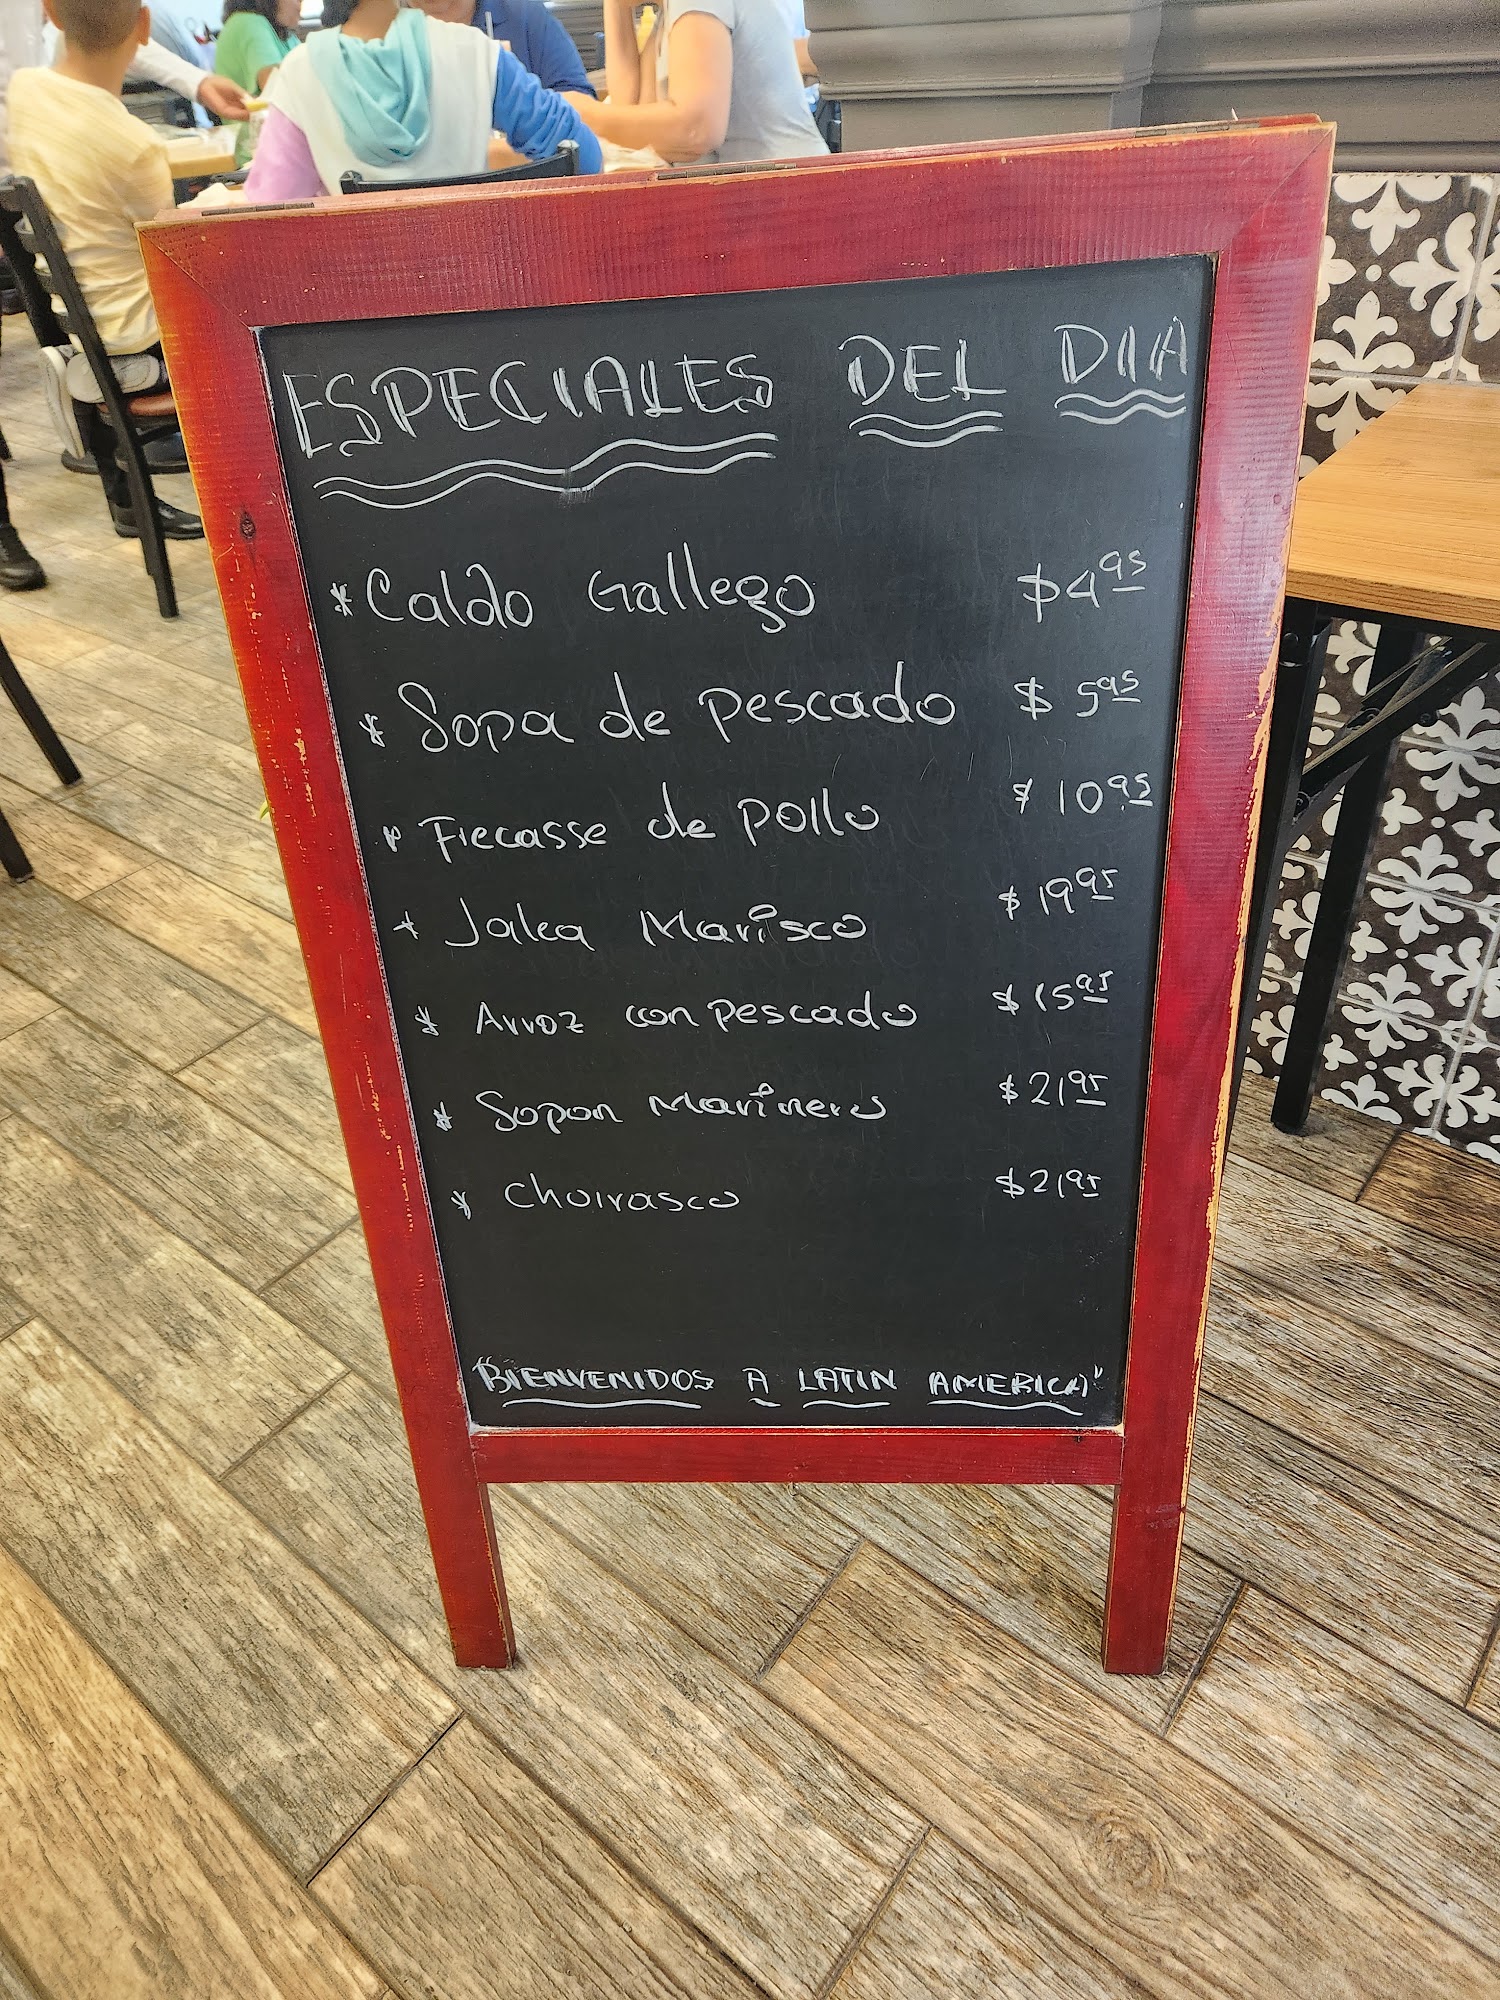 ESPECIALES DEL DIA
* Caldo Gallego $4.95
* Sopa de pescado $5.95
* Friecasse de pollo $10.95
* Jalea Marisco $19.95
* Arroz con pescado $15.95
* Sopon Marinero $21.95
* Choirasco $21.95
"BIENVENIDOS A LATIN AMERICA"